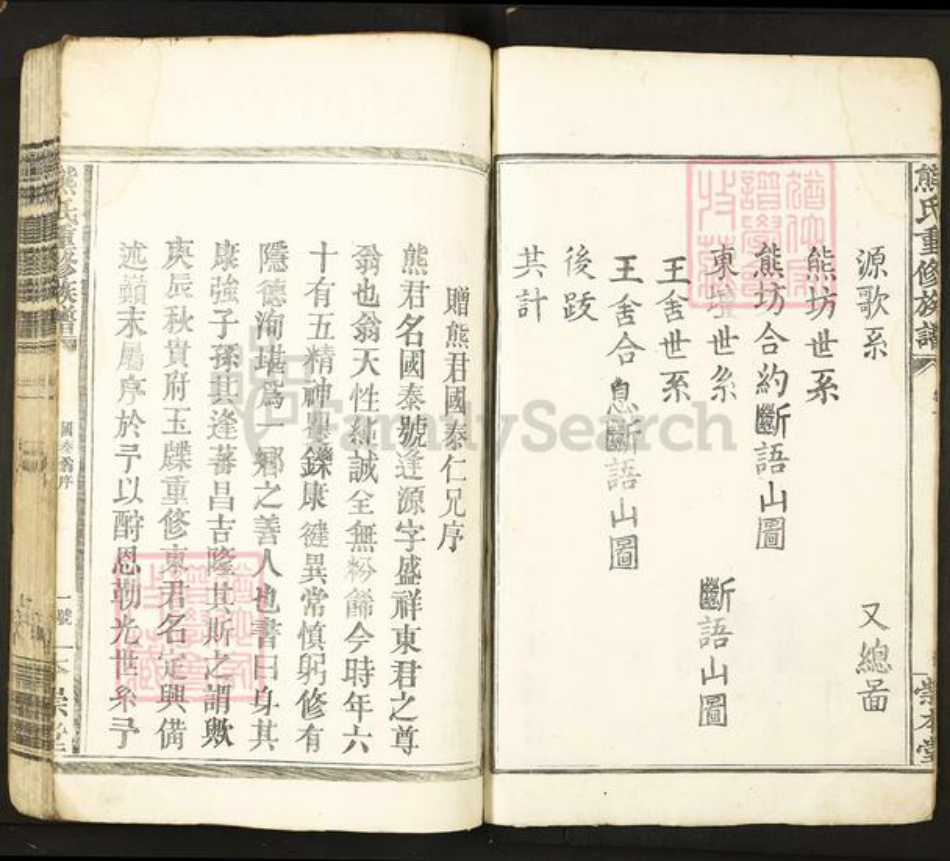 熊氏重修族譜
崇本堂
源歌系
又總啚
熊坊世系
熊坊合約斷語山圖
東壇世系
斷語山圖
王舍世系
王舍合息斷語山圖
後跋
共計
贈熊君國泰仁兄序
熊君名國泰號逢源字盛祥東君之尊
翁也翁天性純誠全無粉餙今時年六
十有五精神矍鑠康健異常慎躬修有
隱德洵堪為一鄉之善人也書曰身其
康強子孫其逢蕃昌吉隆其斯之謂歟
庚辰秋貴府玉牒重修東君名定興備
述巔末屬序於予以酧恩勒光世系予
熊氏重修族譜
國泰翁序
一號
崇
FamilySearch